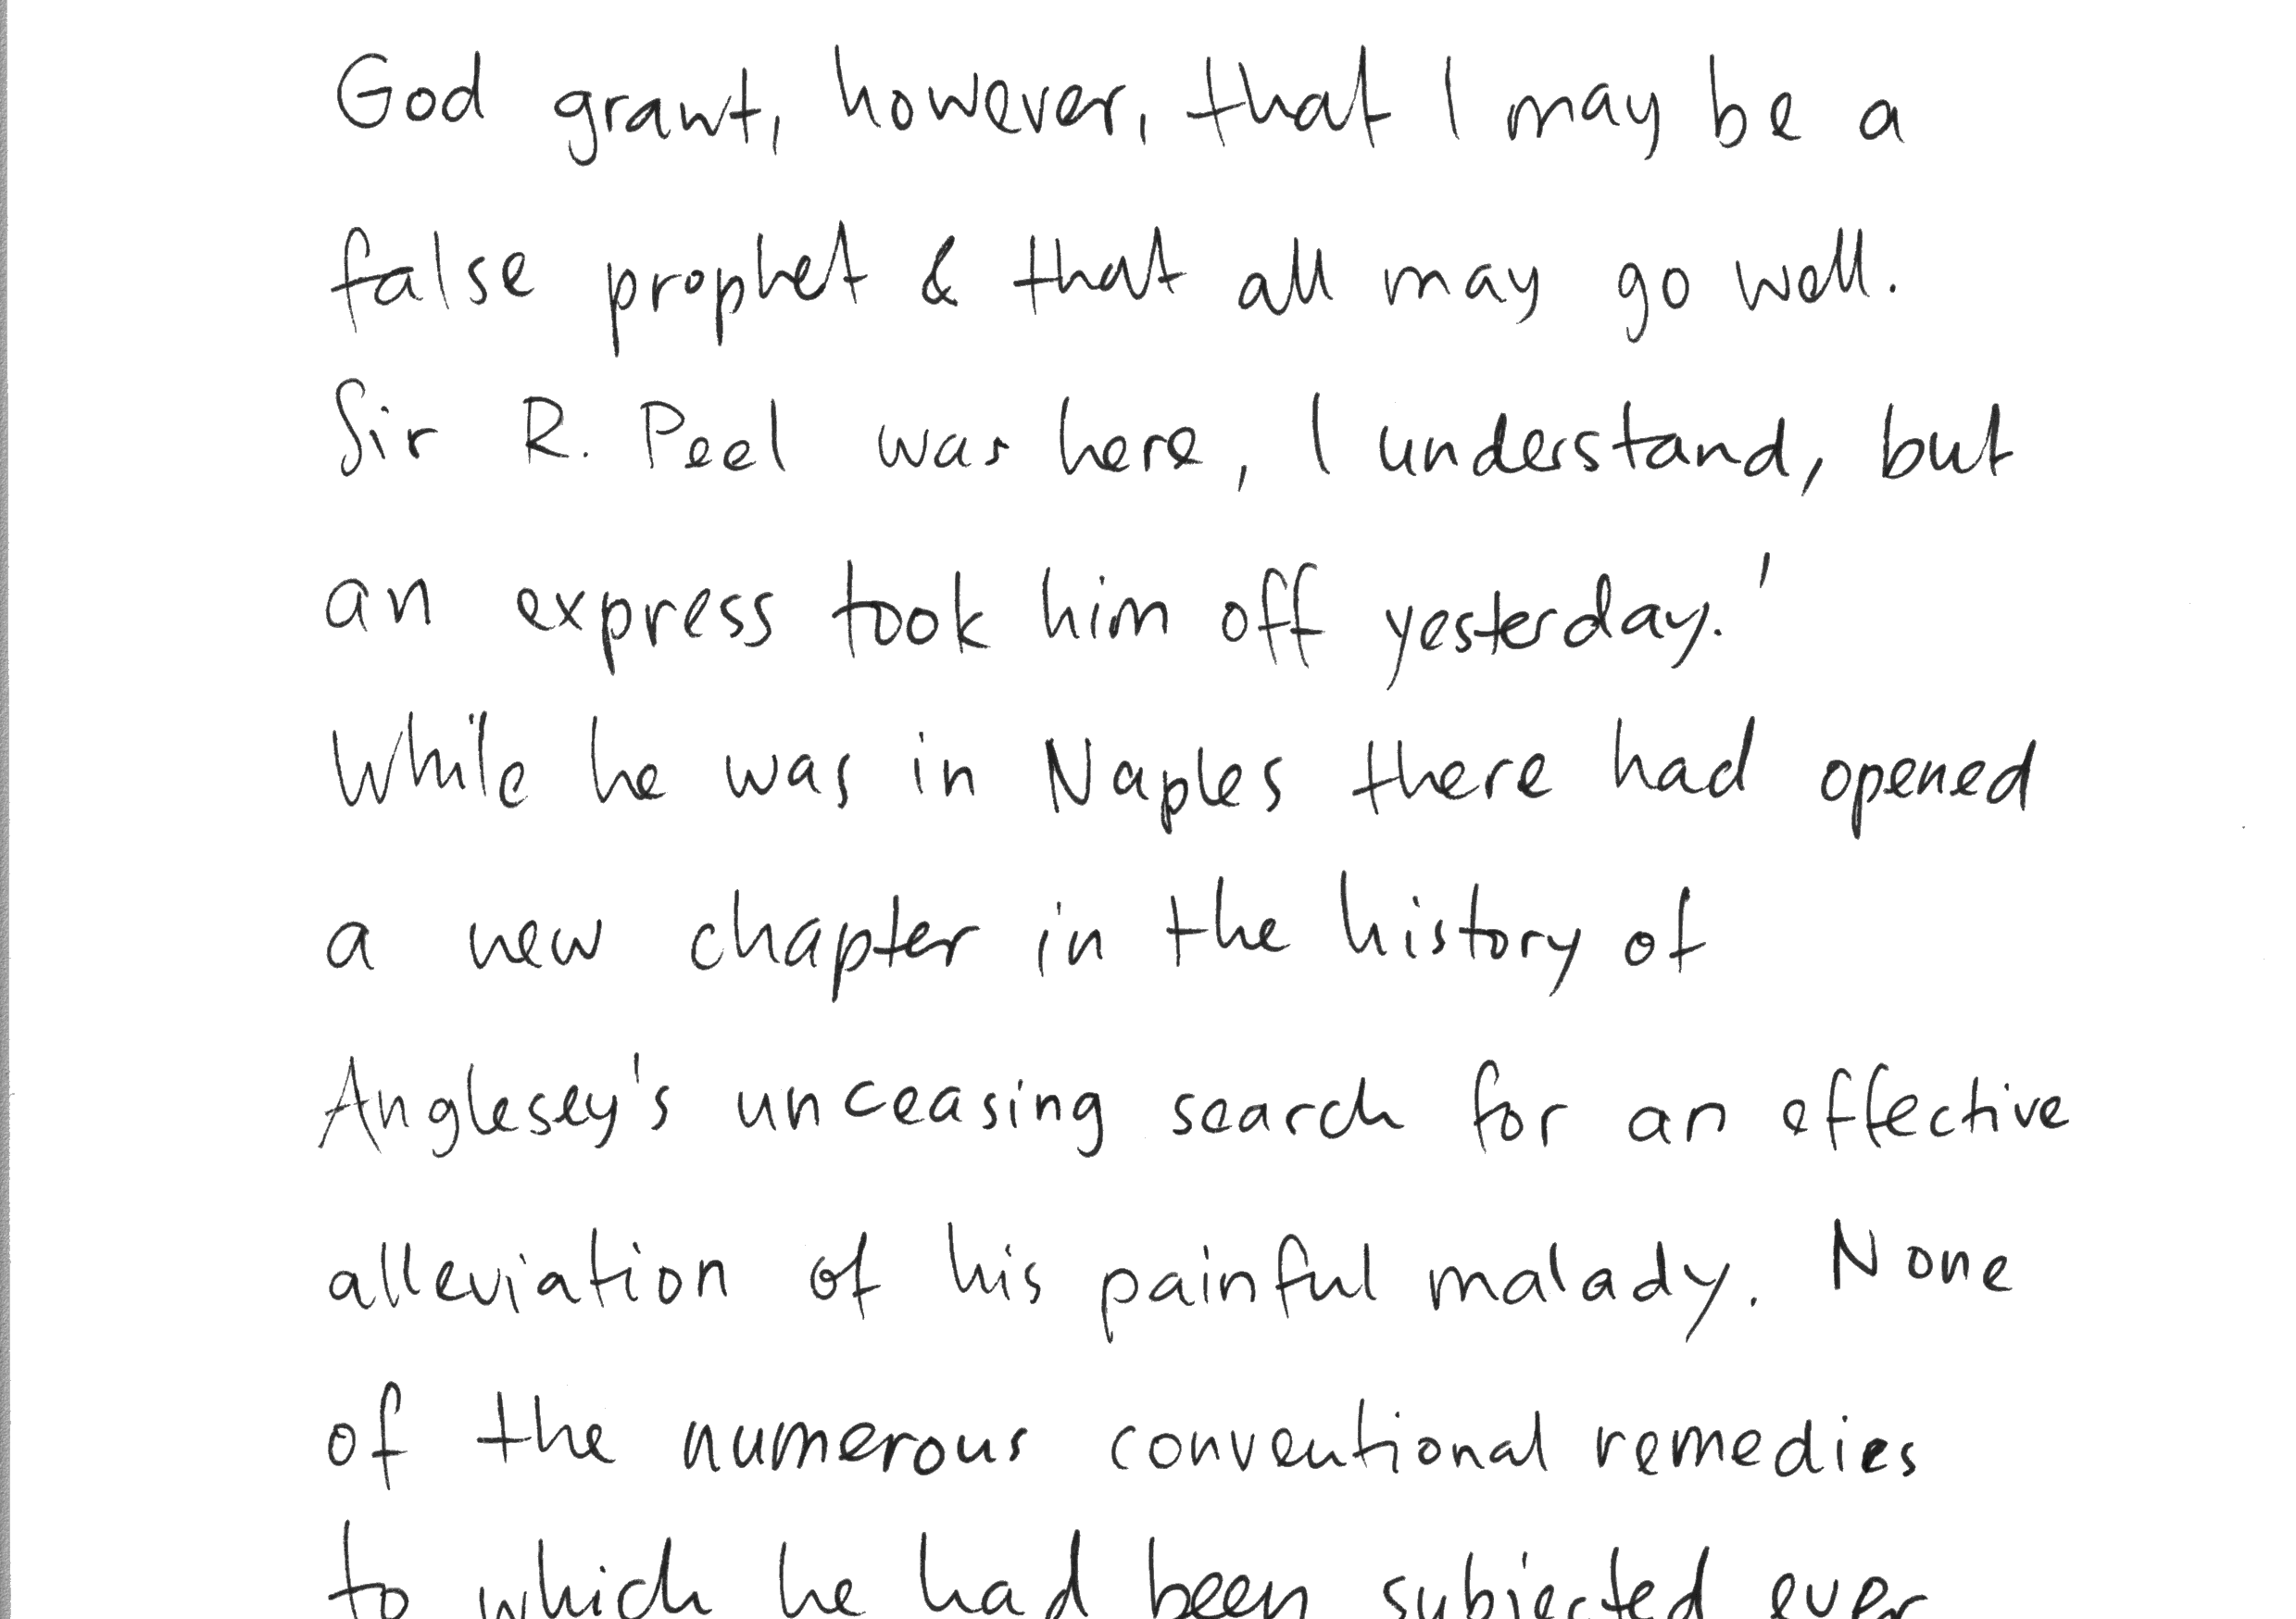 God grant, however, that I may be a
false prophet & that all may go well.
Sir R. Peel was here, I understand, but
an express took him off yesterday.'
While he was in Naples there had opened
a new chapter in the history of
Anglesey's unceasing search for an effective
alleviation of his painful malady. None
of the numerous conventional remedies
to which he had been subjected over